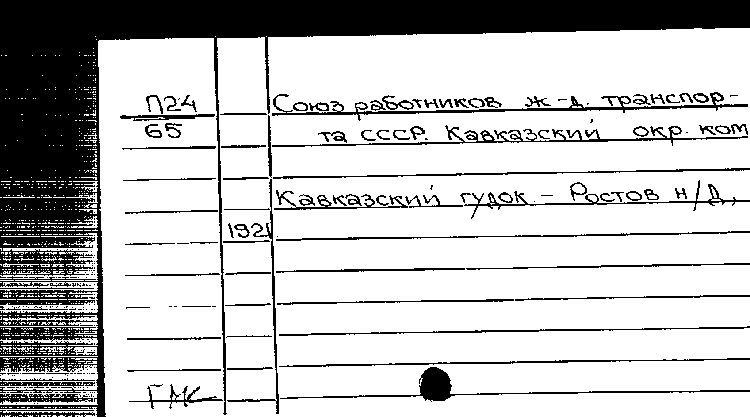 П24
65
Союз работников ж-д. транспор-
та СССР. Кавказский окр. ком
Кавказский гудок - Ростов н/Д,
1921
ГАК